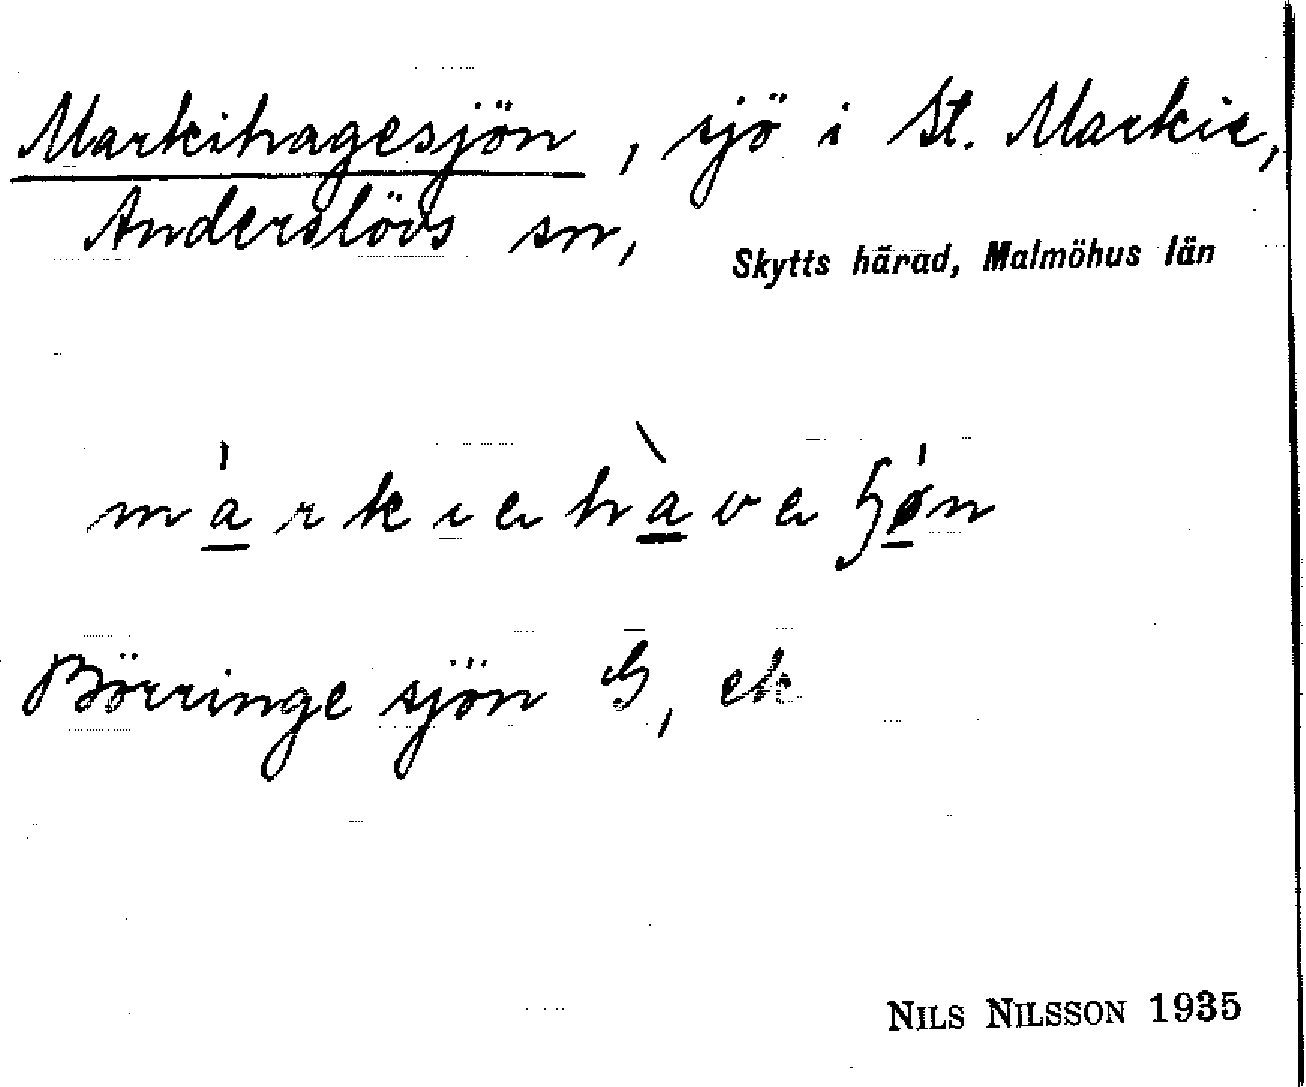 Markihagesjön, sjö i St. Markie,
Anderslövs sn, Skytts härad, Malmöhus län
Börringe sjön G, ek
NILS NILSSON 1935